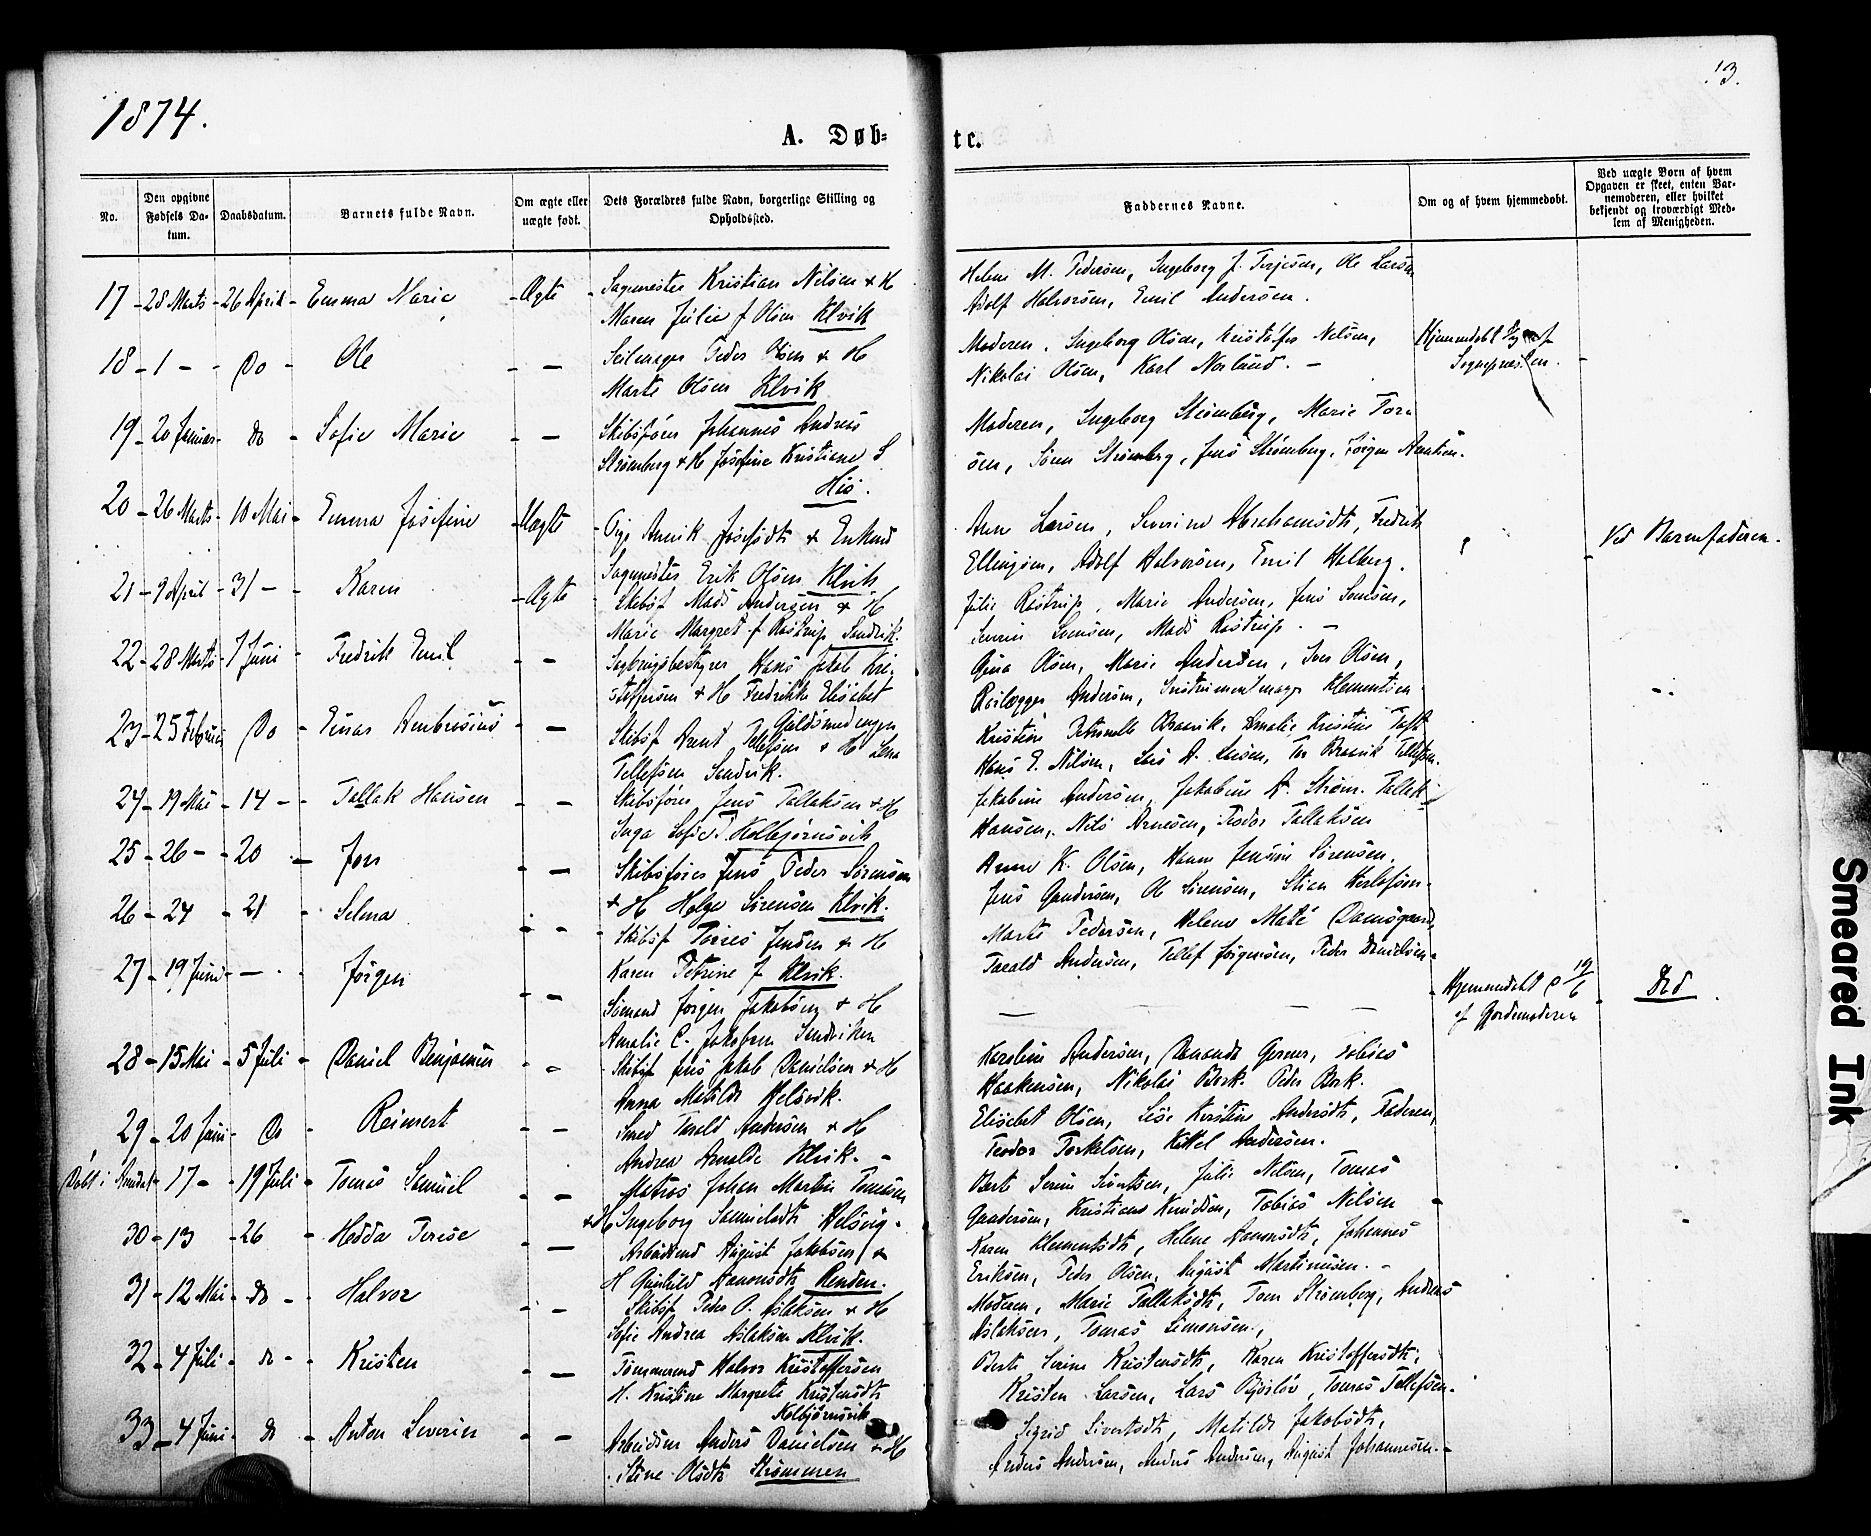 1874.
13.
A. Døb=
te.
No.
Den opgivne Fødsels Da-
tum.
Daabsdatum.
Barnets fulde Navn.
Om ægte eller
uægte født.
Dets Forældres fulde Navn, borgerlige Stilling og
Opholdssted.
Faddernes Navne.
Om og af hvem hjemmedøbt.
Ved uægte Børn af hvem
Opgaven er skeet, enten Bar-
nemoderen, eller hvilket
bekjendt og troværdigt Med-
lem af Menigheden.
17 - 28 Marts - 26 April - Emma Marie - Ægte - Sagmester Kristian Nilsen & H
Maren Julie f Olsen Klvik
Helene M. Pedersen, Ingeborg J. Terjesen, Ole Larsen
Adolf Halvorsen, Emil Andersen.
18 - 1 - - Do - Ole - - Seilmager Peder Olsen & H
Marte Olsen Klvik
Moderen, Ingeborg Olsen, Kristofer Nelsen,
Nikolai Olsen, Karl Norlund. -
Hjemmedøbt af
Sognepresten.
19 - 20 Januar - do - Sofie Marie - - Skibsfører Johannes Andreas
Strømberg & H Josefine Kristiane S
His.
Moderen, Ingeborg Strømberg, Marie Tor-
sen, Søren Strømberg, Jens Strømberg, Jørgen Arntsen.
20 - 26 Marts - 10 Mai - Emma Josefine - Uægte - Pige Annik Josefsdtr & Enkemd
Sagmester Erik Olsen Klvik
Anne Larsen, Severine Abrahamsdtr, Fredrik
Ellingsen, Adolf Halvorsen, Emil Holberg.
Ved Barnefaderen.
21 - 9 April - 31 - - Karen - Ægte - Skibsf Mads Andersen & H
Marie Margret f Rostrup Sandvik.
Julie Rostrup, Marie Andersen, Jens Svensen,
Severin Svensen, Mads Rostrup. -
22 - 28 Marts - 7 Juni - Fredrik Emil - - Sagbrugsbestyrer Hans Jakob Kri-
stoffersen & H Fredrikke Elisebet
Guldsmedengen
Gina Olsen, Marie Andersen, Iver Olsen,
Reilægger Andersen, Instrumentmager Klementsen
23 - 25 Februar - Do - Einar Ambrosius - - Skibsf Arent Tellefsen & H Lena
Tellefsen Sandvik.
Kristine Petronelle Braavik, Amalie Kristine Toft
Hans E. Nilsen, Lars A. Larsen, Tor Braavik Tellefsen.
24 - 19 Mai - 14 - - Tallak Hansen - - Skibsfører Jens Tallaksen & H
Inga Sofie T. Kolbjørnsvik
Jakobine Andersen, Jakobine A. Strøm, Tallak
Hansen, Nils Arnesen, Peder Tallaksen
25 - 26 - - 20 - Jon - - Skibsfører Jens Peder Sørensen
& H Helga Sørensen Klvik.
Anne K. Olsen, Hanne Jensine Sørensen,
Jens Gundersen, Ole Sørensen, Stian Herlofsen.
26 - 24 - 21 - Selma - - Skibsf Tories Jensen & H
Karen Petrine J Klvik.
Marte Pedersen, Helene Mate Damsgaard,
Tarald Andersen, Tellef Jørgensen, Peder Danielsen -
27 - 19 Juni - - Jørgen - - Sømand Jørgen Jakobsen & H
Amalie C. Jakobsen Sandviken
Hjemmedøbt d 19/6
af Gjordemoderen
Død
28 - 15 Mai - 5 Juli - Daniel Benjamin - - Skibsf Jens Jakob Danielsen & H
Anna Matilde Helsvik.
Karoline Andersen, Amanda Gerner, Tobias
Haakensen, Nikolai Bork. Peder Bork.
29 - 20 Juni - Do - Reimert - - Smed Tarald Andersen & H
Andrea Amalde Klvik. -
Elisebet Olsen, Lise Kirstine Andersdtr, Faderen,
Teodor Torkelsen, Kittel Andersen.
Døbt i Arendal - 17 - - 19 Juli - Tomas Samuel - - Matros Johan Martin Tomasen
& H Ingeborg Samuelsdtr Helsvig.
Berte Serine Sivertsen, Julie Nelsen, Tomas
Gundersen, Kristiane Knudsen, Tobias Nelsen
30 - 13 - 26 - Hedda Terese - - Arbeidsmd August Jakobsen &
H Gunhild Aanonsdtr Renden.
Karen Klementsdtr, Helene Aanonsdtr, Johannes
Eriksen, Peder Olsen, August Martinusen. -
31 - 12 Mai - do - Halvor - - Skibsf Peder O. Aslaksen & H
Sofie Andrea Aslaksen Klvik.
Moderen, Marie Tallaksdtr, Toen Strømberg, Anders
Aslaksen, Tomas Simonsen.
32 - 4 Juli - do - Kristen - - Tømmermd Halvor Kristoffersen
H. Kristine Margrete Kristensdtr
Kolbjørnsvik
Berte Serine Kristensdtr, Karen Kristoffersdtr,
Kristen Larsen, Lars Bjosløv, Tomas Tellefsen.
33 - 4 Juni - do - Anton Severin - - Arbeidsm Anders Danielsen & H
Stine Olsdtr Strømmen
Sigrid Sivertsdtr, Matilde Jakobsdtr,
Anders Andersen, Anders Andersen, August Johannesen. -
Smeared Ink